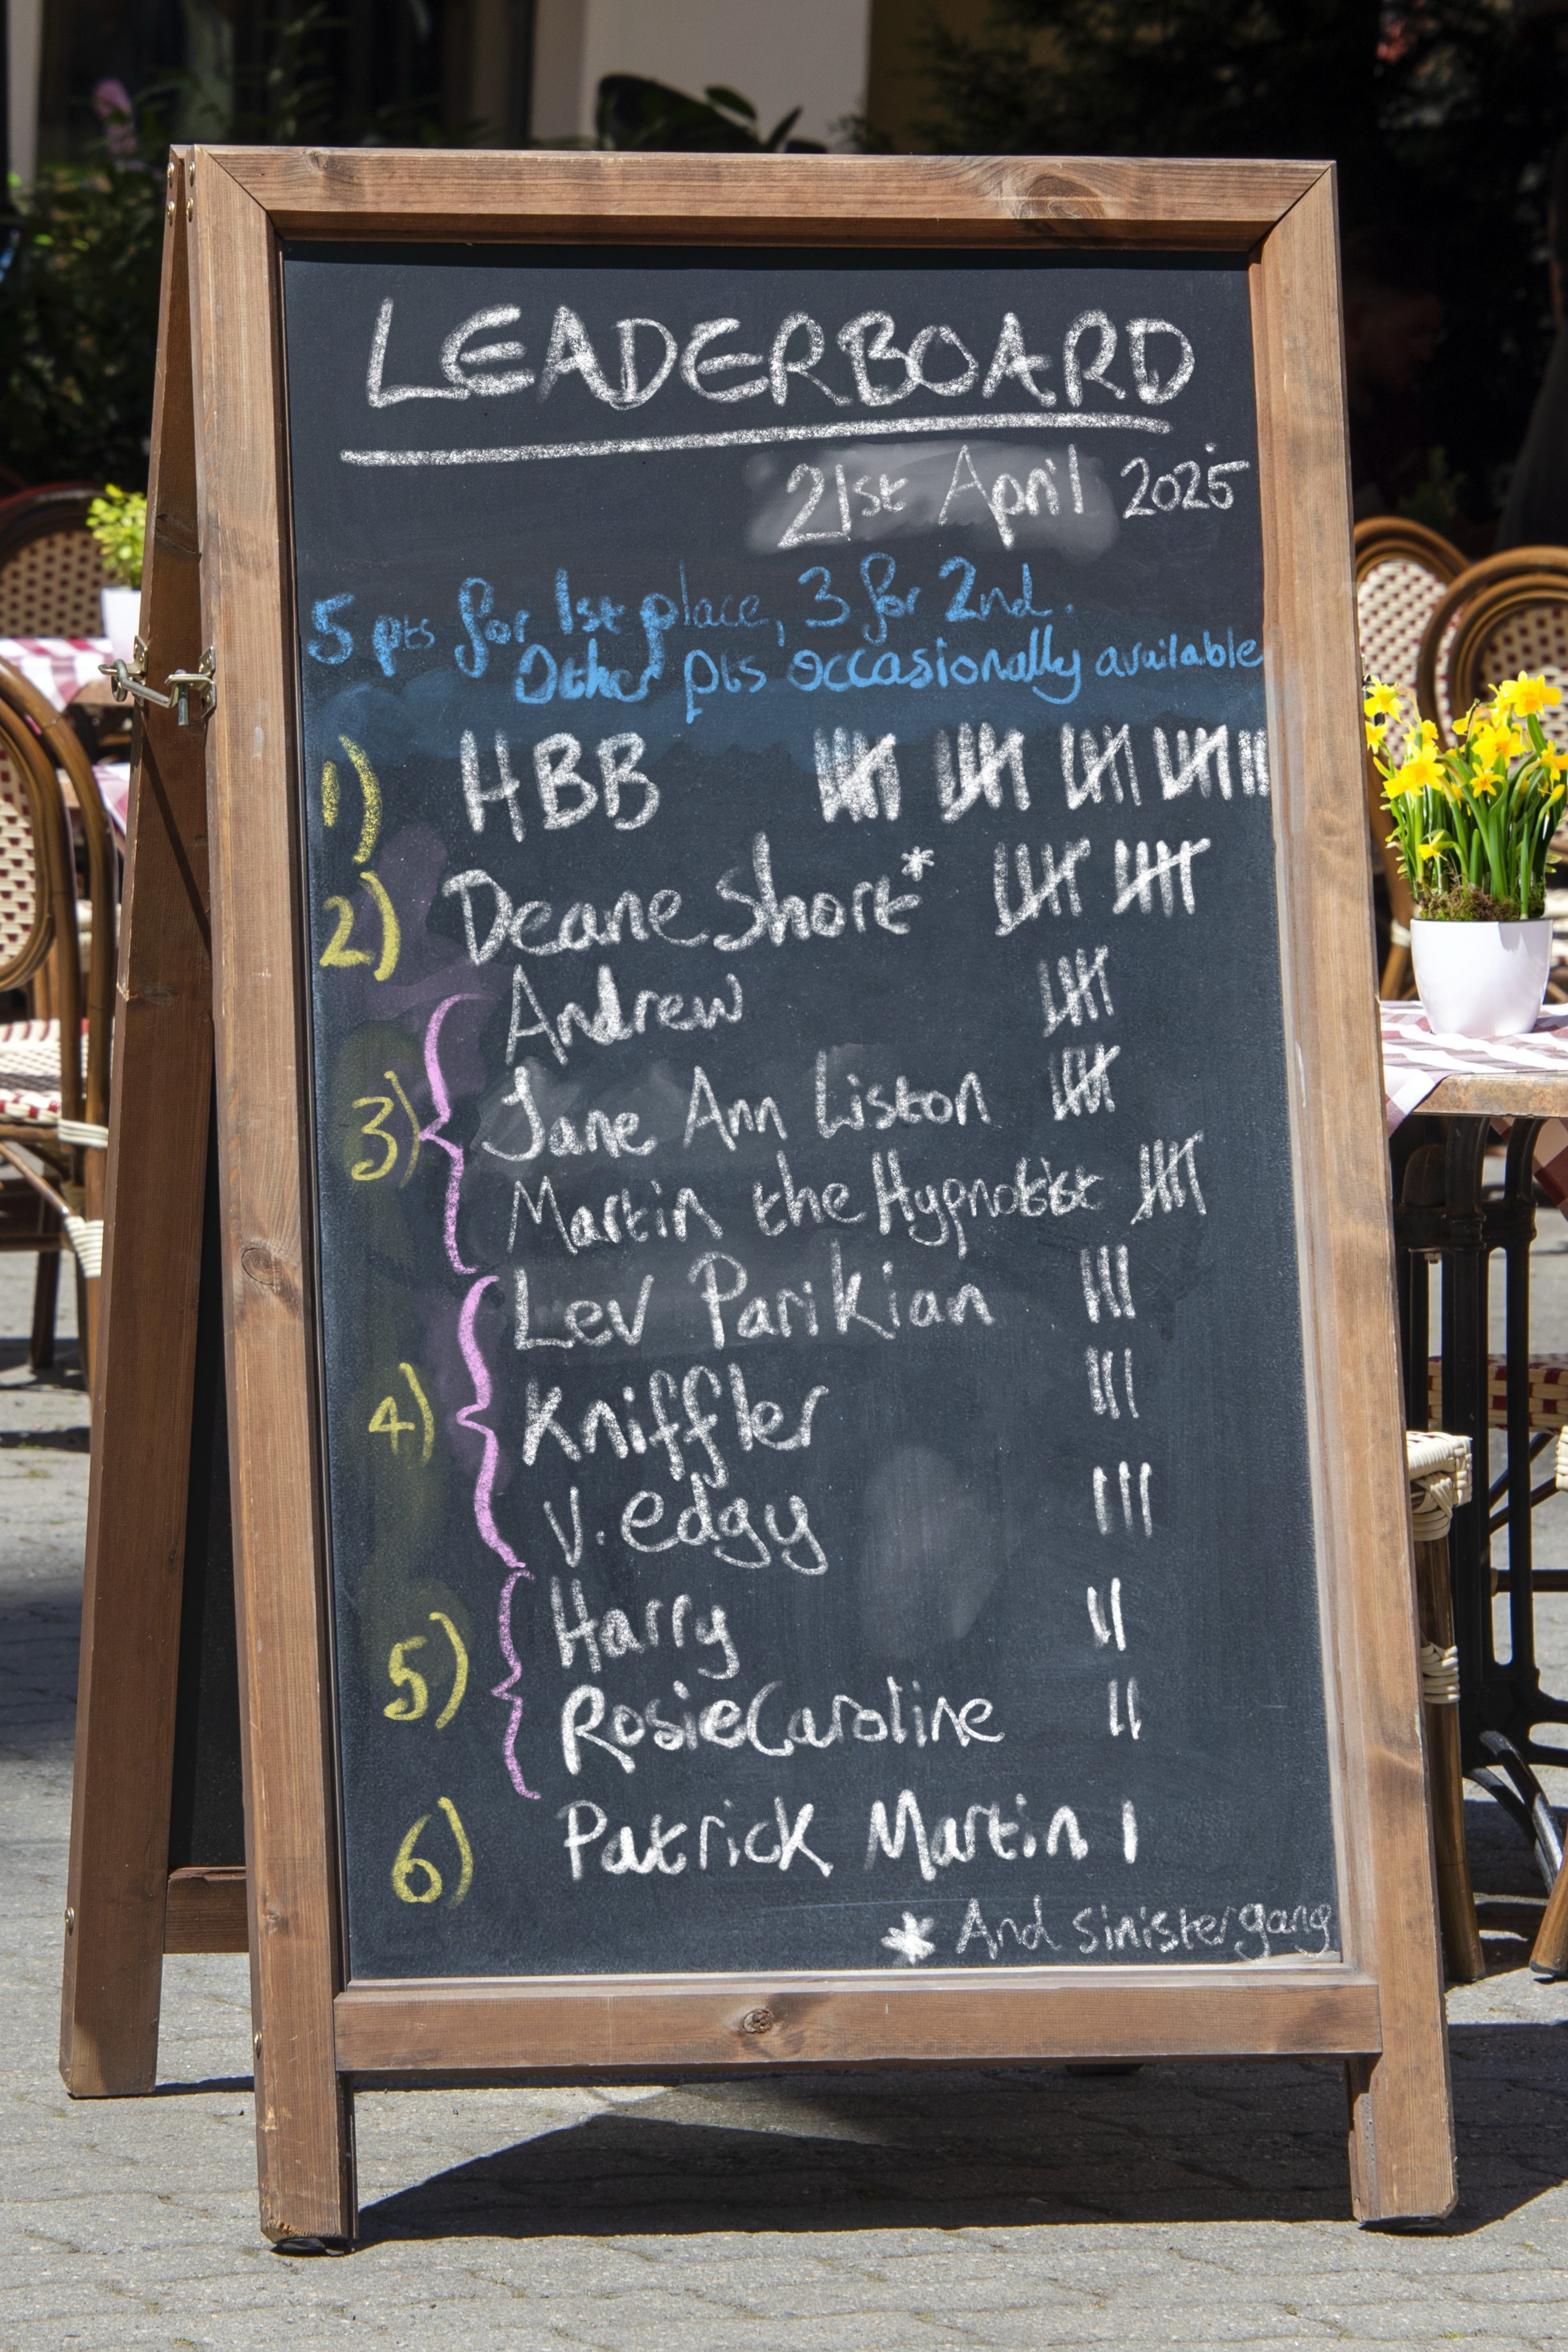 LEADERBOARD
21st April 2025
5 pts for 1st place, 3 for 2nd.
Other pts occasionally available
1) HBB
2) Deane Short*
Andrew
3) Jane Ann Liston
Martin the Hypnotist
Lev Parikian
4) Kniffler
V. edgy
Harry
5) RosieCaroline
6) Patrick Martin
* And sinistergang